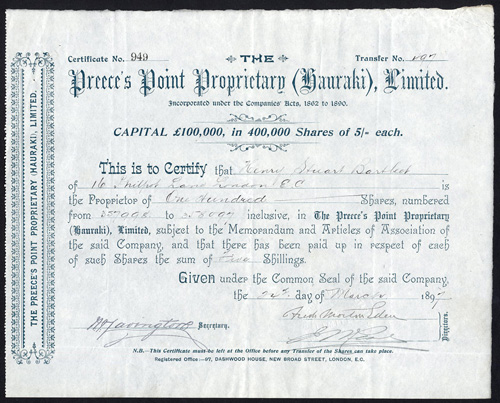 THE PREECE'S POINT PROPRIETARY (HAURAKI), LIMITED.
Certificate No. 949
THE
Transfer No.
Preece's Point Proprietary (Hauraki), Limited.
Incorporated under the Companies' Acts, 1862 to 1890.
CAPITAL £100,000, in 400,000 Shares of 5/- each.
This is to Certify that Henry Stuart Bartleet
of 16 Lane London E C is
the Proprietor of One Hundred Shares, numbered
from to inclusive, in The Preece's Point Proprietary
(Hauraki), Limited, subject to the Memorandum and Articles of Association of
the said Company, and that there has been paid up in respect of each
of such Shares the sum of Five Shillings.
Given under the Common Seal of the said Company,
the 24th day of March 1897
Secretary.
Directors.
N.B.—This Certificate must be left at the Office before any Transfer of the Shares can take place.
Registered Office:—97, DASHWOOD HOUSE, NEW BROAD STREET, LONDON, E.C.